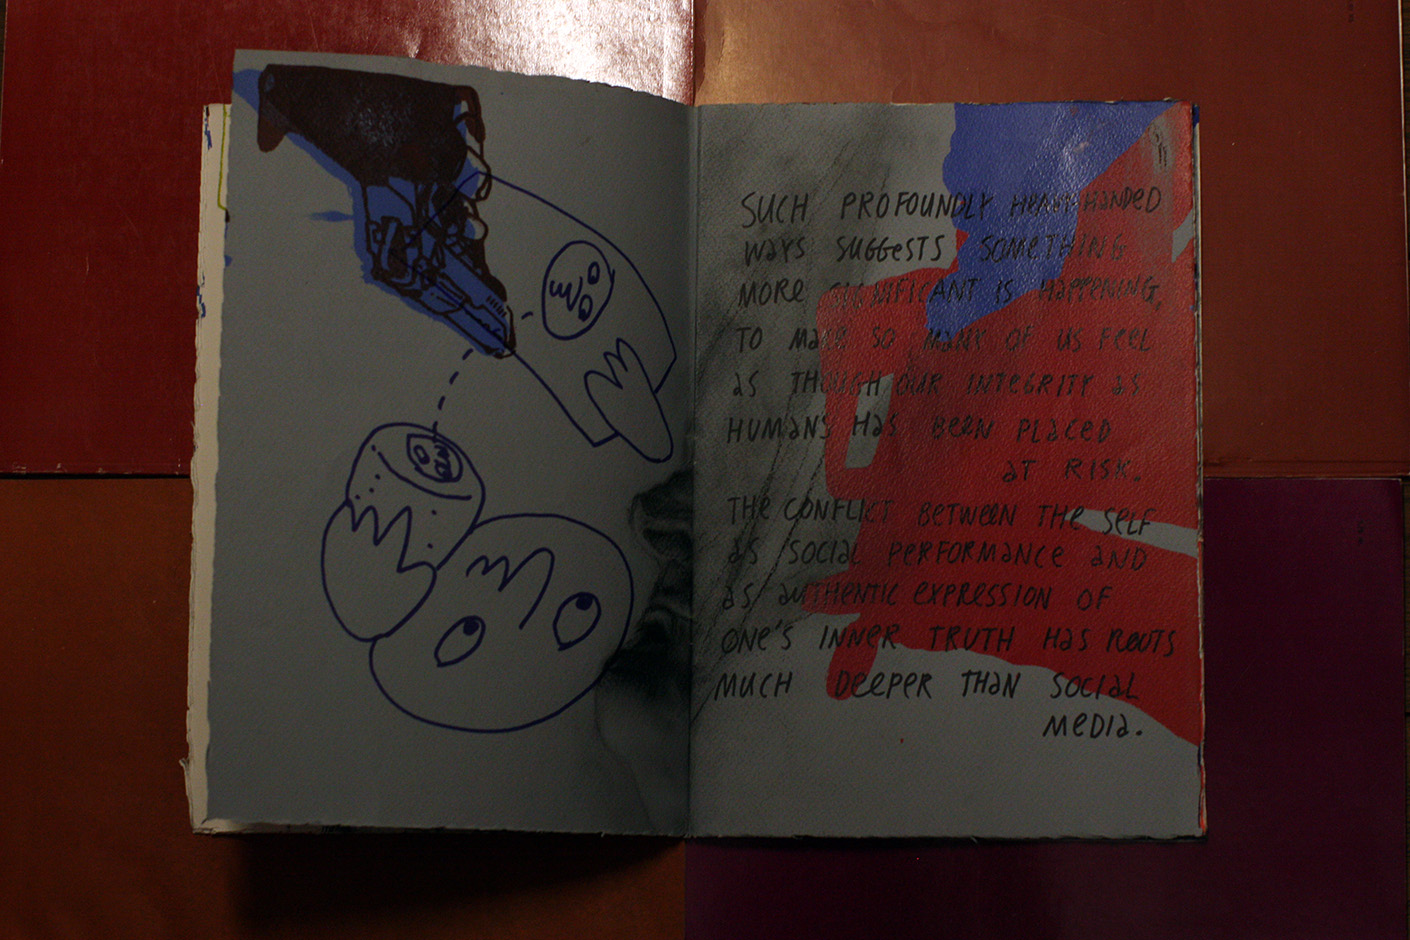 SUCH PROFOUNDLY HEAVY-HANDED
WAYS SUGGESTS SOMETHING
MORE SIGNIFICANT IS HAPPENING,
TO MAKE SO MANY OF US FEEL
AS THOUGH OUR INTEGRITY AS
HUMANS HAS BEEN PLACED
AT RISK.
THE CONFLICT BETWEEN THE SELF
AS SOCIAL PERFORMANCE AND
AS AUTHENTIC EXPRESSION OF
ONE'S INNER TRUTH HAS ROOTS
MUCH DEEPER THAN SOCIAL
MEDIA.